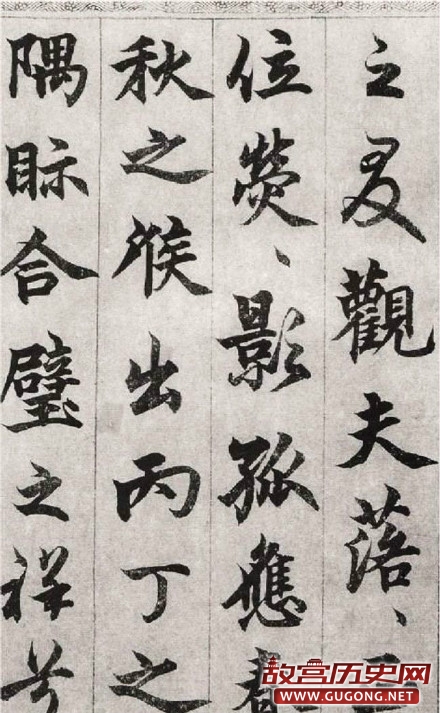 之觀夫落、三
位熒、影孤應春
秋之候出丙丁之
隅眎合璧之祥
故宫历史网
www.GUGONG.net